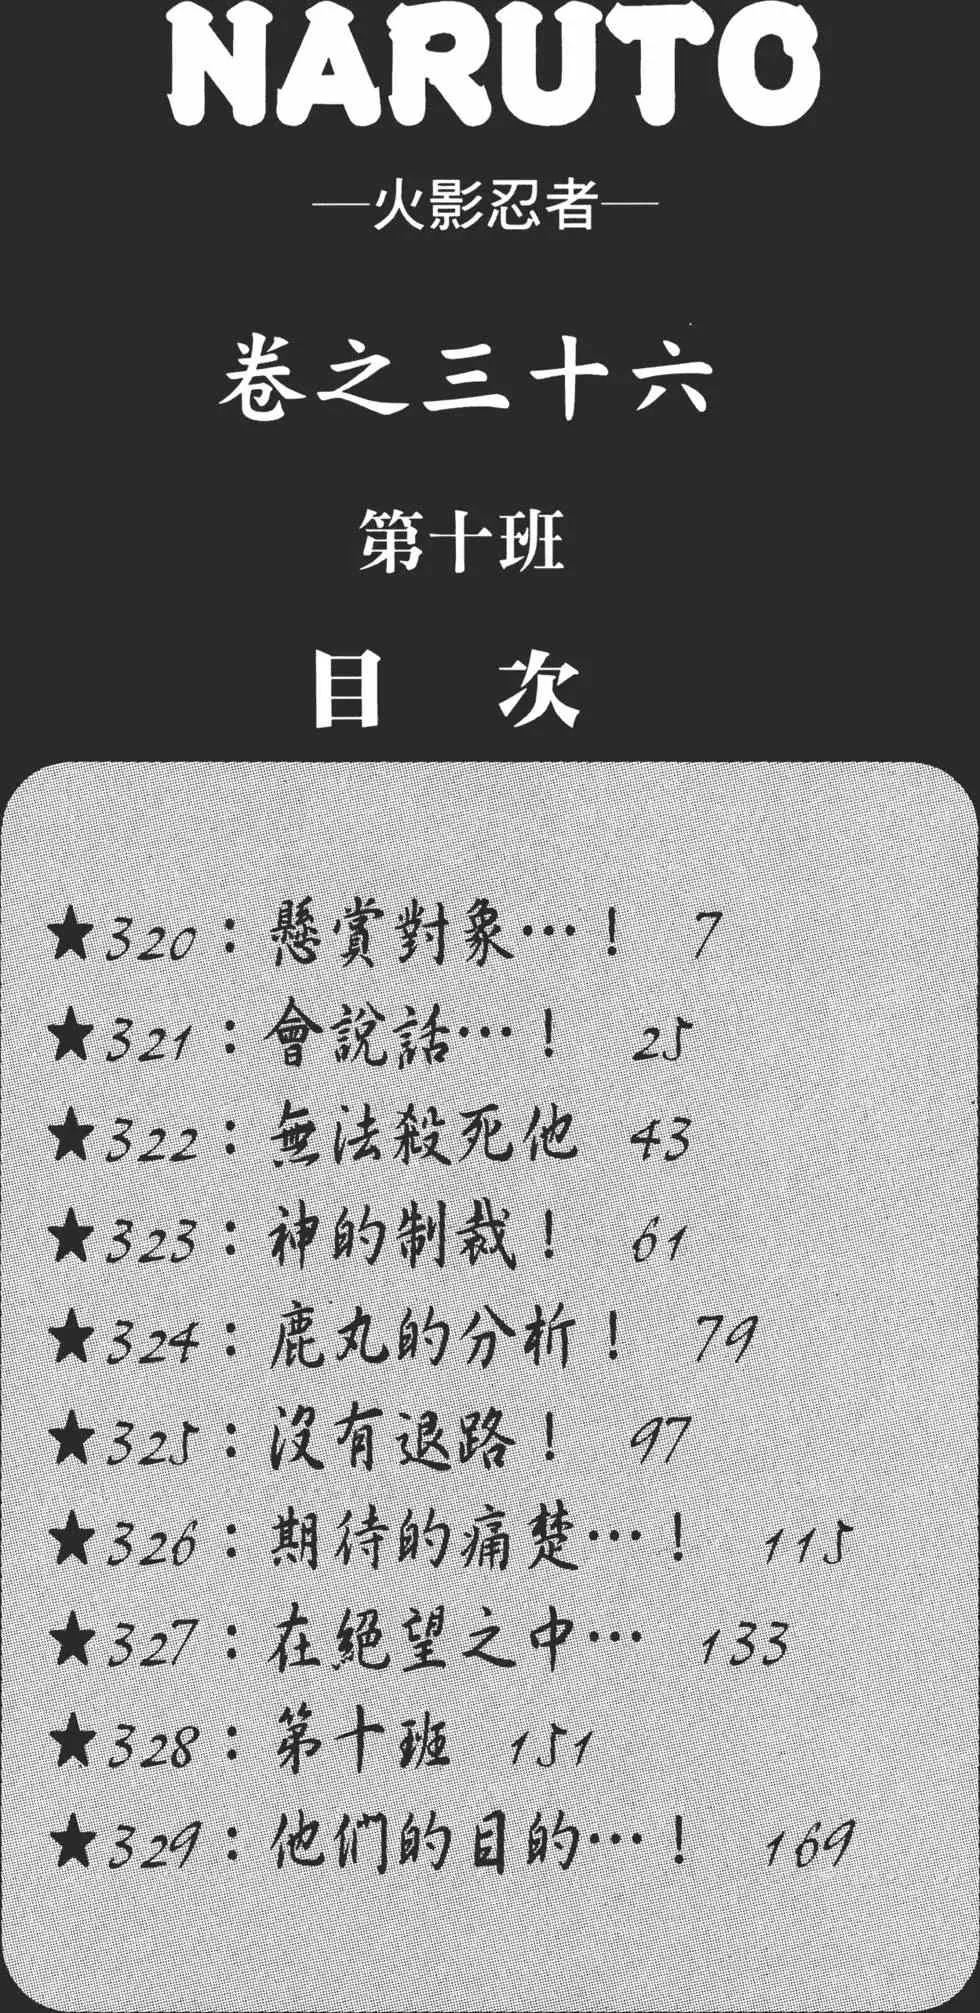 NARUTO
—火影忍者—
卷之三十六
第十班
目 次
★320：懸賞對象…！ 7
★321：會說話…！ 25
★322：無法殺死他 43
★323：神的制裁！ 61
★324：鹿丸的分析！ 79
★325：沒有退路！ 97
★326：期待的痛楚…！ 115
★327：在絕望之中… 133
★328：第十班 151
★329：他們的目的…！ 169